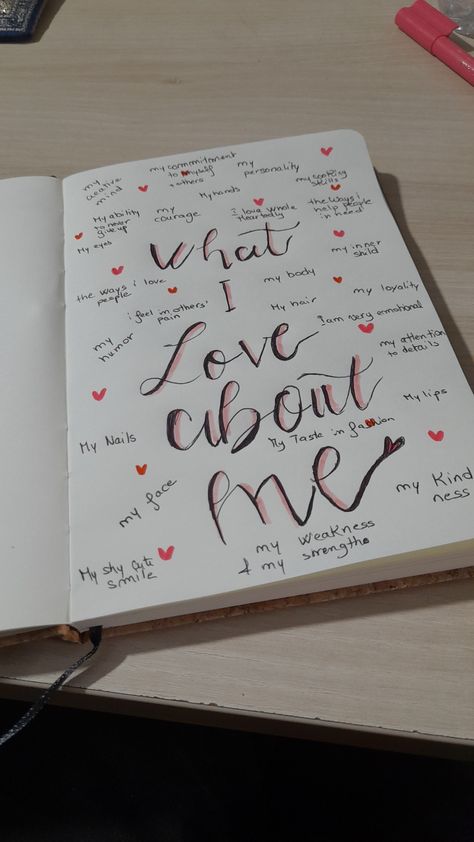 my creative mind
my commitment to myself + others
my personality
my cooking skills
My ability to never give up
my courage
My hands
I love whole heartedly
the ways i help people in need
My eyes
What
my inner child
the ways i love people
I
my body
my loyality
i feel in others' pain
My hair
I am very emotional
my humor
Love
my attention to details
about
My lips
My Nails
My Taste in fashion
me
my face
my Kind ness
my Weakness & my strengths
My shy cute smile